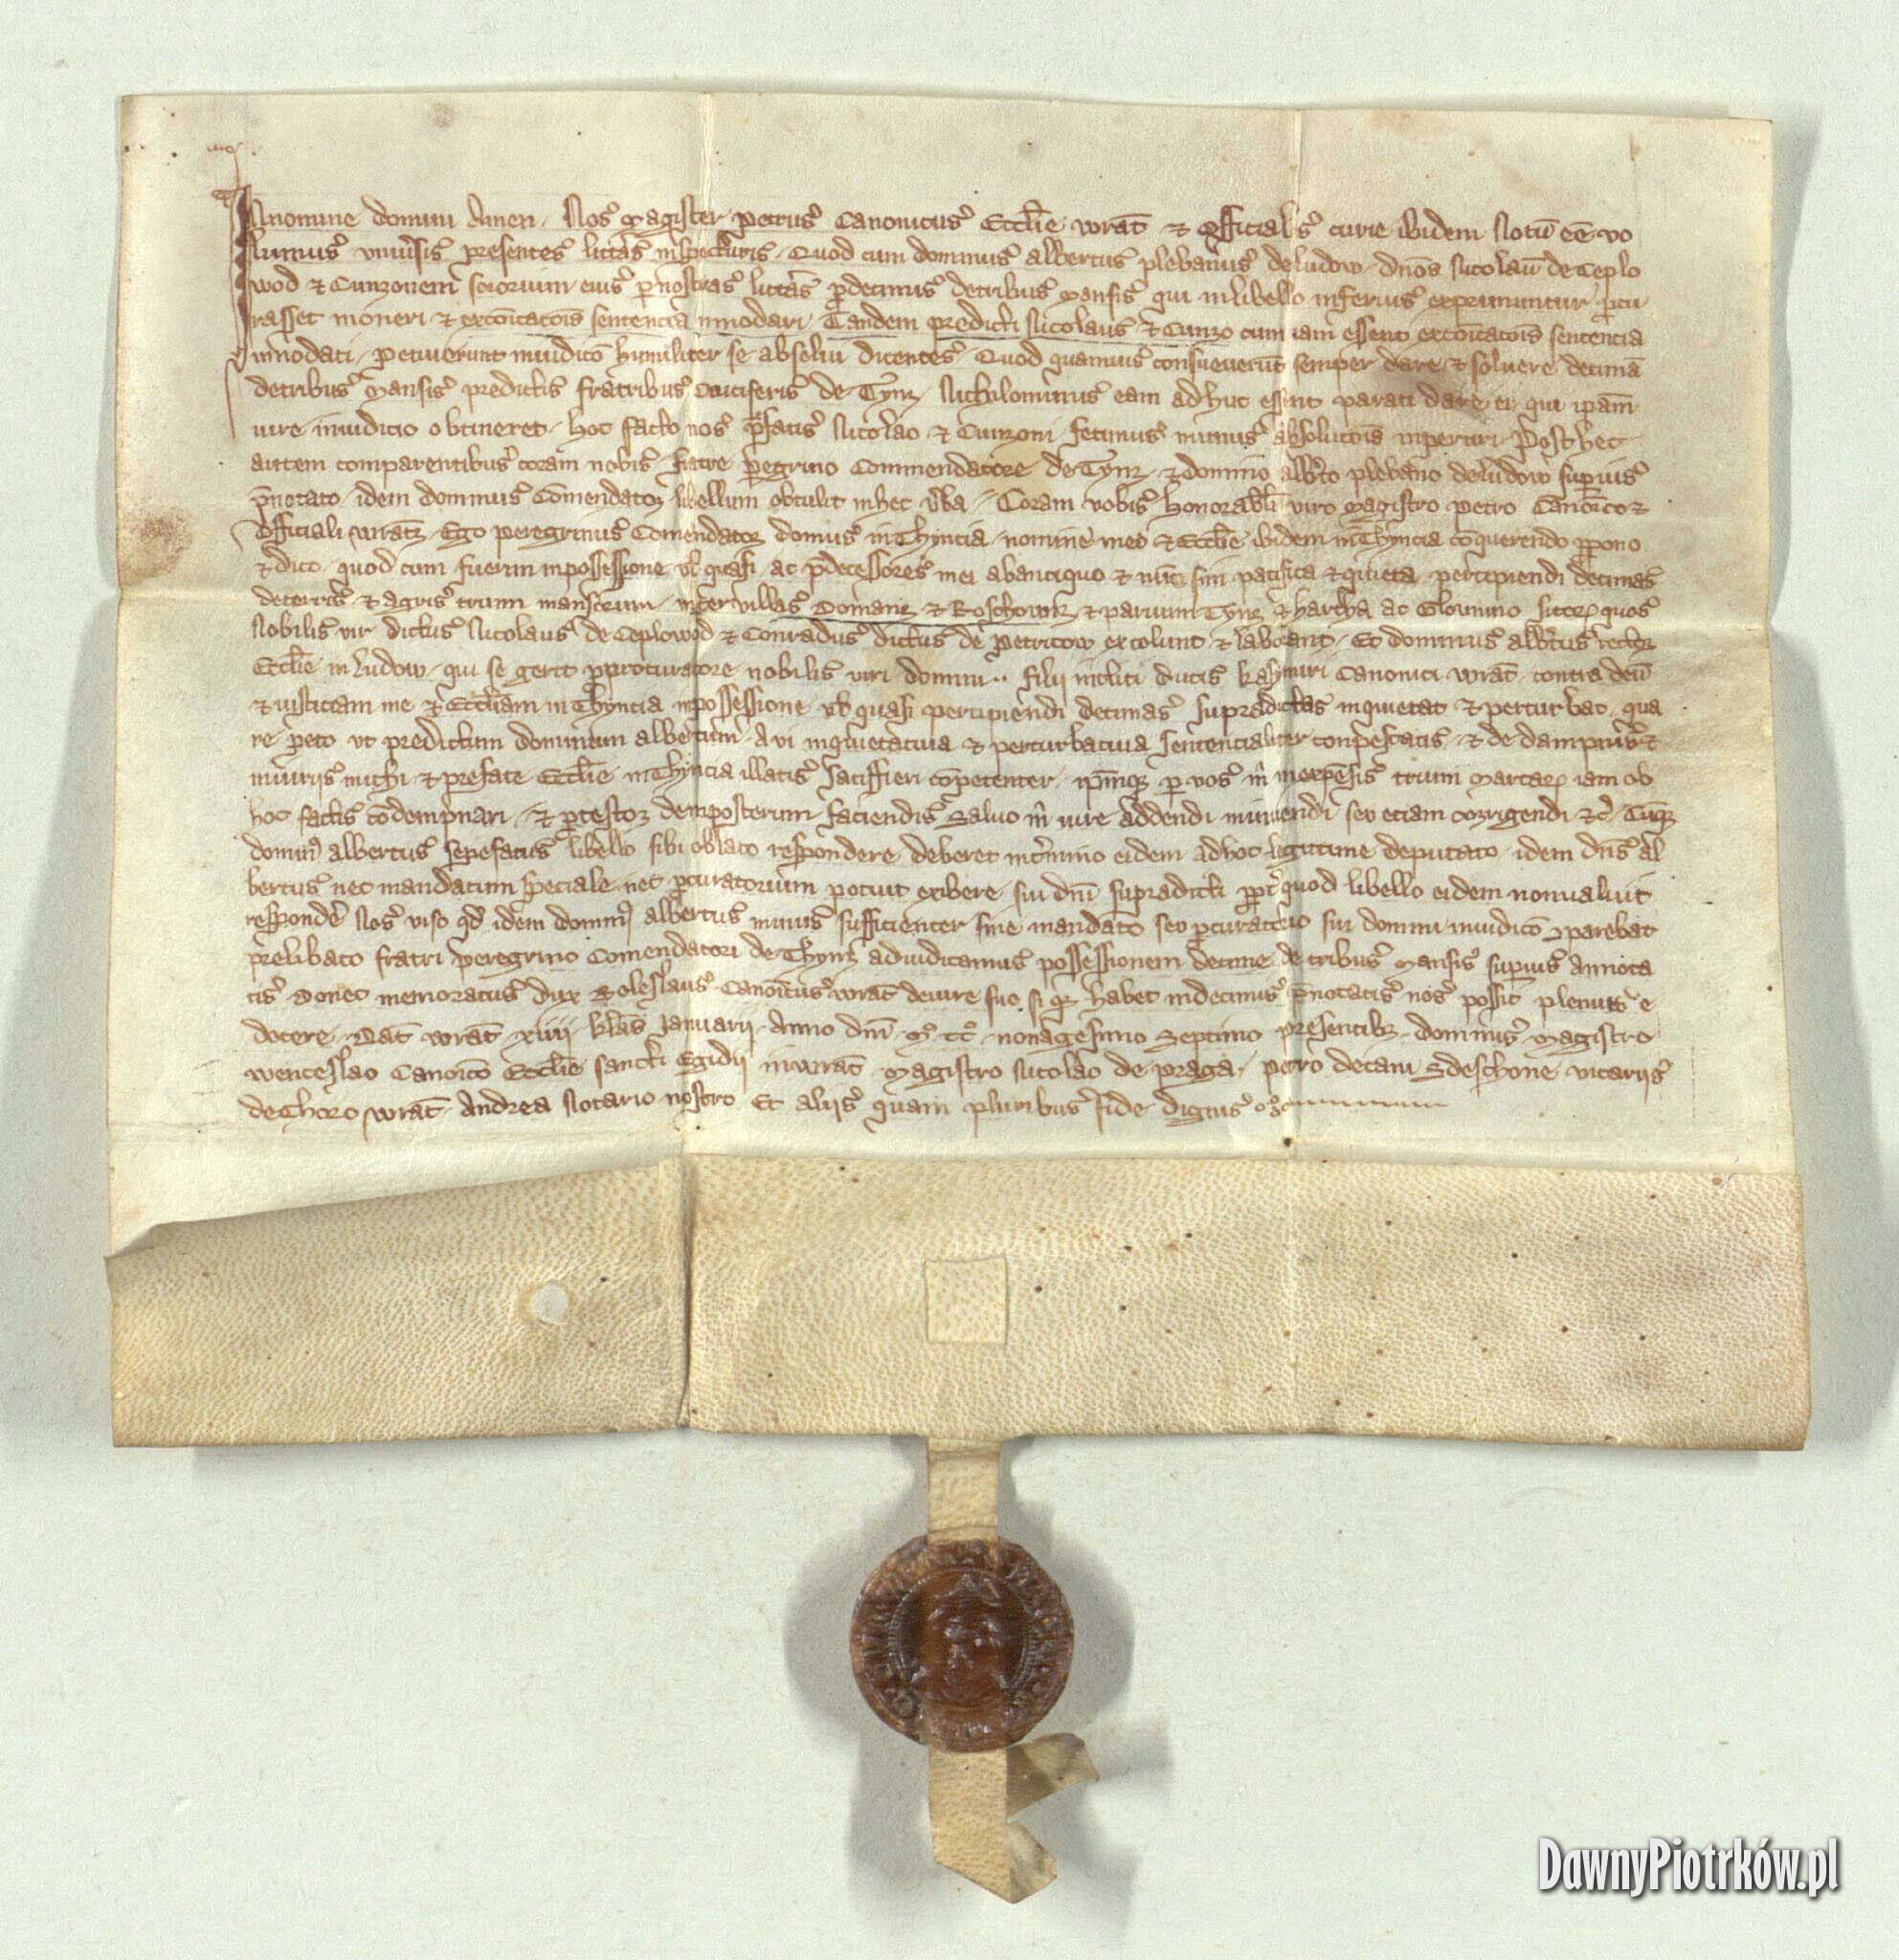 In nomine domini Amen. Nos Magister Petrus Canonicus Eccl̄ie wrat̄ & Officialis curie ibidem Notū eē vo
lumus vniūsis presentes litt̄as inspecturis. Quod cum dominus albertus plebanus de ludow. dn̄os Nicolaū de Ceplo
wod & Cunzonem sororium eius p̄ nostras litt̄as p̄ decimis de tribus Mansis qui in libello inferius exprimuntur p̄cu
rasset moneri & exco͞icatōis sentencia innodari. Tandem predicti Nicolaus & Cunzo cum iam essent exco͞icatōis sentencia
innodati. petiuerunt in iudicō humiliter se absolui dicentes. Quod quamuis consueuerūt semper dare & soluere decimā
de tribus Mansis predictis fratribus Cruciferis de Tynz. Nichylominus eam adhuc essent parati dare ei qui ipam̄
iure in iudicio obtineret. hoc facto nos p̄fatis Nicolao & Cunzoni fecimus munus absolutōis inpertiri. Post hec
autem comparentibus coram nobis fratre peregrino Commendatore de Tynz. & domino alb̄to plebano de ludow superius
p̄notato. idem dominus Cōmendator libellum obtulit in hec v̄ba. Coram vobis honorabili viro Magistro petro Canōico &
Officiali wrat̄. Ego peregrinus Comendator domus in Thyncia. nomine meo & Eccl̄ie ibidem in Thyncia cōquerendo p̄pono
& dico. quod cum fuerim in possessione vl̄ quasi ac p̄decessores mei ab antiquo & nūc sim pacifica & quieta. percipiendi decimas
de terris & agris trium mansorum. inter villas Domanz & Roschowiz & paruum Tynz & hartha ac Glovnino sitor quos
Nobilis vir dictus Nicolaus de Ceplowod & Conradus dictus de petricow excolunt & laborant. Et dominus alb̄tus rector
Eccl̄ie in ludow. qui se gerit p̄ procuratore nobilis viri domini .. filij incliti ducis kasymiri Canonici wrat̄. contra deū
& iusticiam me & Eccl̄iam in Thyncia in possessione vl̄ quasi percipiendi decimas supradictas inquietat & perturbat. qua
re peto vt predictum dominum albertum. a vi inquietatiua & perturbatiua sentencialiter conpescatis. & de dampnis &
iniuriis michi & prefate Eccl̄ie in Thyncia illatis satisfieri cōpetenter. ip̄mq; p̄ vos m̄ in expēsis trium Marcar iam ob
hoc factis cōdempnari. & p̄testor de inposterum faciendis. Saluo m̄ iure addendi minuendi seu etiam corrigendi &c̄. Cūq;
domin albertus sepefatus libello sibi oblato respondere deberet in t̄mino eidem ad hoc legitime deputato. idem dn̄s al
bertus nec mandatum speciale nec p̄curatorium potuit exibere sui dn̄i supradicti p̄pt̄ quod libello eidem non valuit
respondē Nos viso qd̄ idem domin albertus minus sufficienter sine mandato seu p̄curatorio sui domini in iudicō 9parebat
prelibato fratri peregrino Comendatori de Thynz adiudicamus possessionem decime de tribus Mansis superius annota
tis Donec memoratus dux Boleslaus Canōicus wrat̄ de iure suo si q habet in decimis p̄notatis nos possit plenius e
docere. Dat̄ wrat̄ xiiij kl̄as Januarij. Anno dn̄i M̊ CC̊ nonagesimo Septimo presentib; dominis Magistro
wenceslao Canoicō Eccl̄ie sancti Egidij in wrat̄. Magistro Nicolao de praga. petro decani Sdeschone vicarijs
de Choro wrat̄. Andrea Notario nostro Et alijs quam pluribus fide dignis
DawnyPiotrków.pl